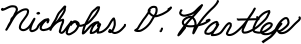 Nicholas D. Hartlep